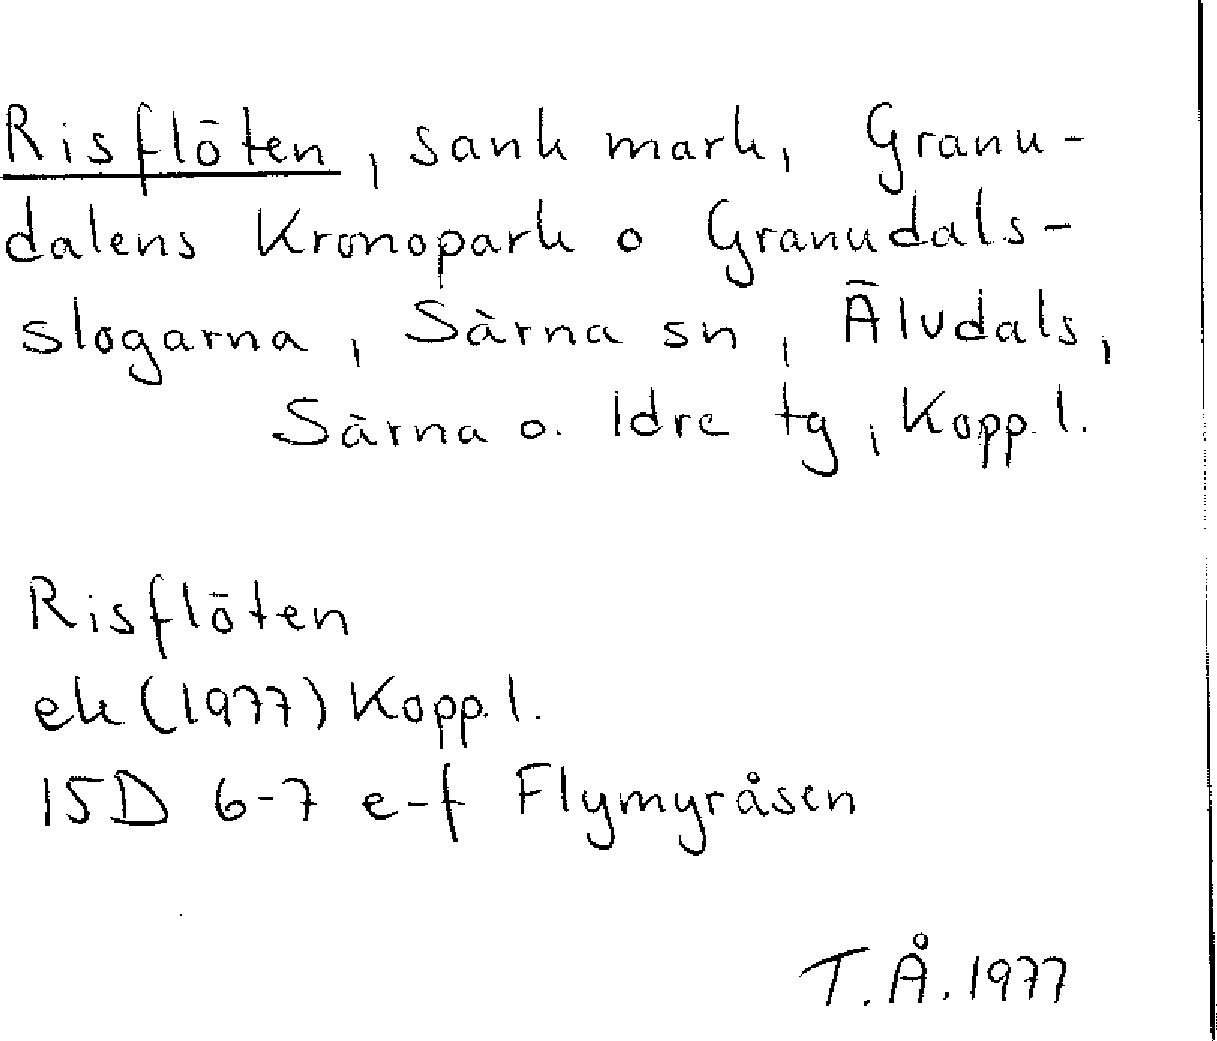 Risflöten, sank mark, Granu-
dalens Kronopark o Granudals-
slogarna, Särna sn, Älvdals,
Särna o. Idre tg, Kopp. l.
Risflöten
ek (1977) Kopp. l.
15D 6-7 e-f Flymyråsen
T.Å. 1977